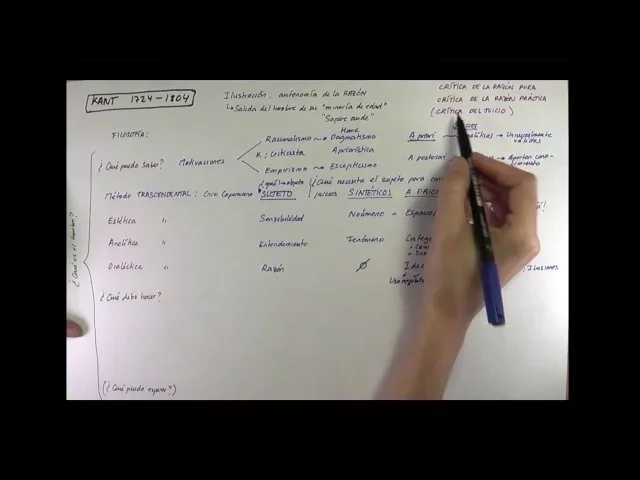 KANT 1724-1804
Ilustración: autonomía de la RAZÓN
↳ Salida del hombre de su "minoría de edad"
"Sapere aude"
CRÍTICA DE LA RAZÓN PURA
CRÍTICA DE LA RAZÓN PRÁCTICA
(CRÍTICA DEL JUICIO)
FILOSOFÍA:
¿Qué puedo saber? Motivaciones
Racionalismo ~ Dogmatismo
Hume
K: Criticista Apriorística
Empirismo ~ Escepticismo
A priori → Universalmente válidos
A posteriori → Aportan conocimiento
Método TRASCENDENTAL: Giro Copernicano SUJETO
¿Qué necesita el sujeto para
juicios SINTÉTICOS A PRIORI
Estética " Sensibilidad Noúmeno +
Analítica " Entendimiento Fenómeno
Dialéctica " Razón Ø : Ilusiones
¿Qué es el hombre?
¿Qué debo hacer?
(¿Qué puedo esperar?)